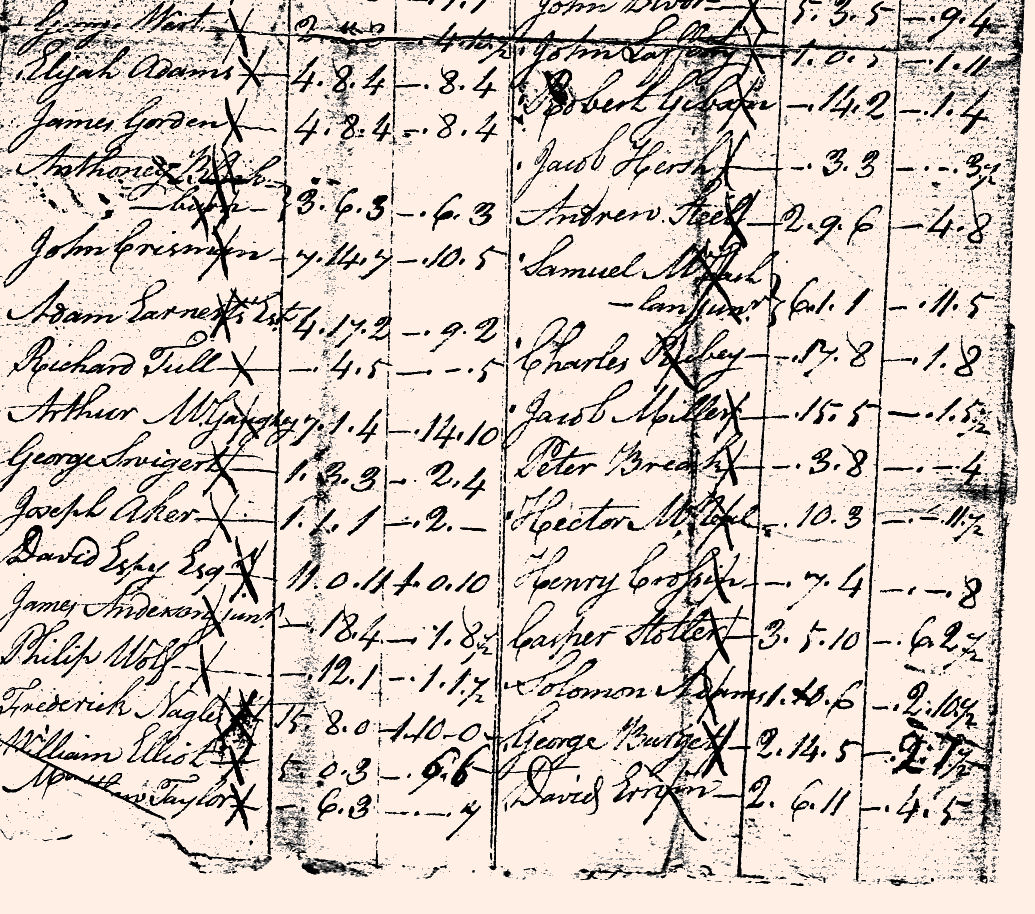 George West
Elijah Adams 4. 8. 4 -. 8. 4
James Gorden 4. 8. 4 -. 8. 4
Anthoney
-burn 3. 6. 3 -. 6. 3
John Crisman 7. 14. 7 -. 10. 5
Adam Earnest's Est 4. 17. 2 -. 9. 2
Richard Tull -. 4. 5 -. -. 5
Arthur McGaughey 7. 1. 4 -. 14. 10
George Swigert 1. 3. 3 -. 2. 4
Joseph Aker 1. 1. 1 -. 2. -
David Espy Esq 11. 0. 11 1. 0. 10
James Anderson junr -. 18. 4 -. 1. 8½
Philip Wolf -. 12. 1 -. 1. 1½
Frederick Nagle 15 8. 0 1. 10. 0
William Elliot 5. 0. 3 -. 6. 6
Matthew Taylor -. 6. 3 -. -. 7
John 5. 3. 5 -. 9. 4
John Lafferty 1. 0. 5 -. 1. 11
Robert Gibson -. 14. 2 -. 1. 4
Jacob Hersh -. 3. 3 -. -. 3½
Andrew Steel 2. 9. 6 -. 4. 8
Samuel
-lan junr 6. 1. 1 -. 11. 5
Charles Rubey -. 17. 8 -. 1. 8
Jacob Miller -. 15. 5 -. 1. 5½
Peter -. 3. 8 -. -. 4
Hector -. 10. 3 -. -. 11½
Henry Crossin -. 7. 4 -. -. 8
Casper Stotler 3. 5. 10 -. 6. 2½
Solomon Adams 1. 10. 6 -. 2. 10½
George Burget 2. 14. 5 -. 2. 7½
David Erwin 2. 6. 11 -. 4. 5